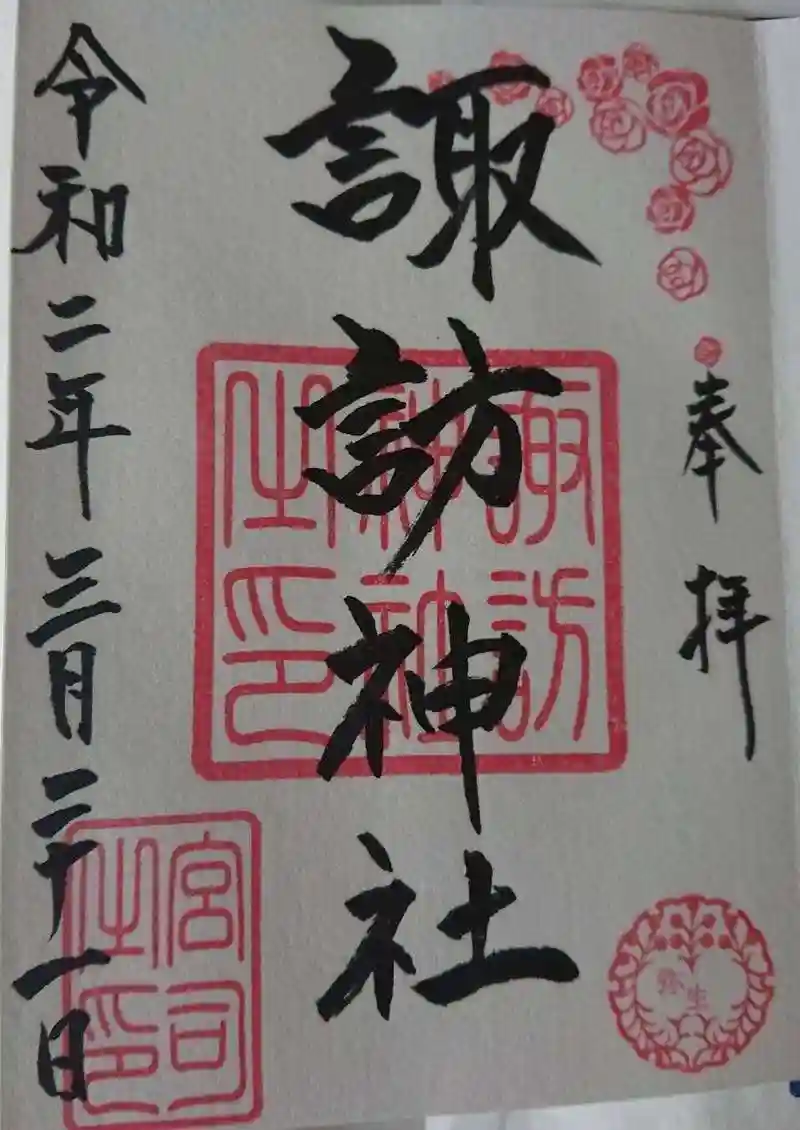 奉拝
諏訪神社
諏訪
神社
之印
令和二年三月二十一日
宮司
之印
弥生